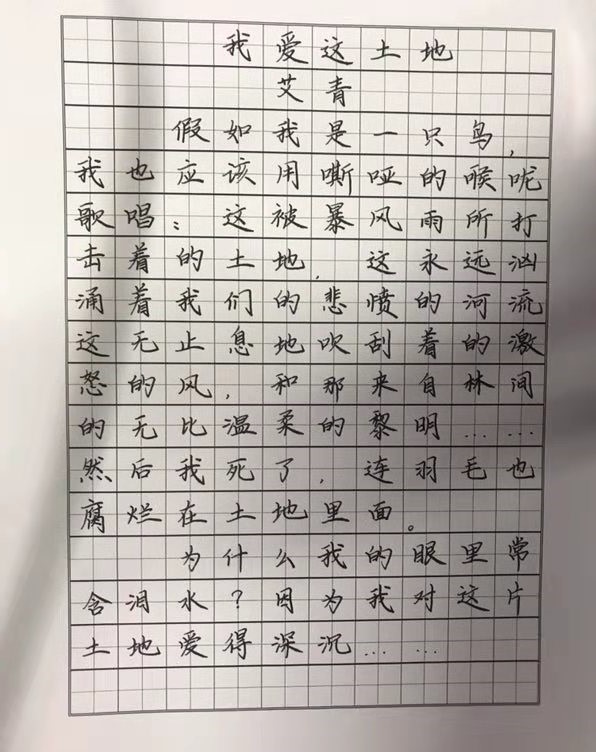 我爱这土地
艾青
假如我是一只鸟，
我也应该用嘶哑的喉咙
歌唱：这被暴风雨所打
击着的土地，这永远汹
涌着我们的悲愤的河流
这无止息地吹刮着的激
怒的风，和那来自林间
的无比温柔的黎明……
然后我死了，连羽毛也
腐烂在土地里面。
为什么我的眼里常
含泪水？因为我对这片
土地爱得深沉……